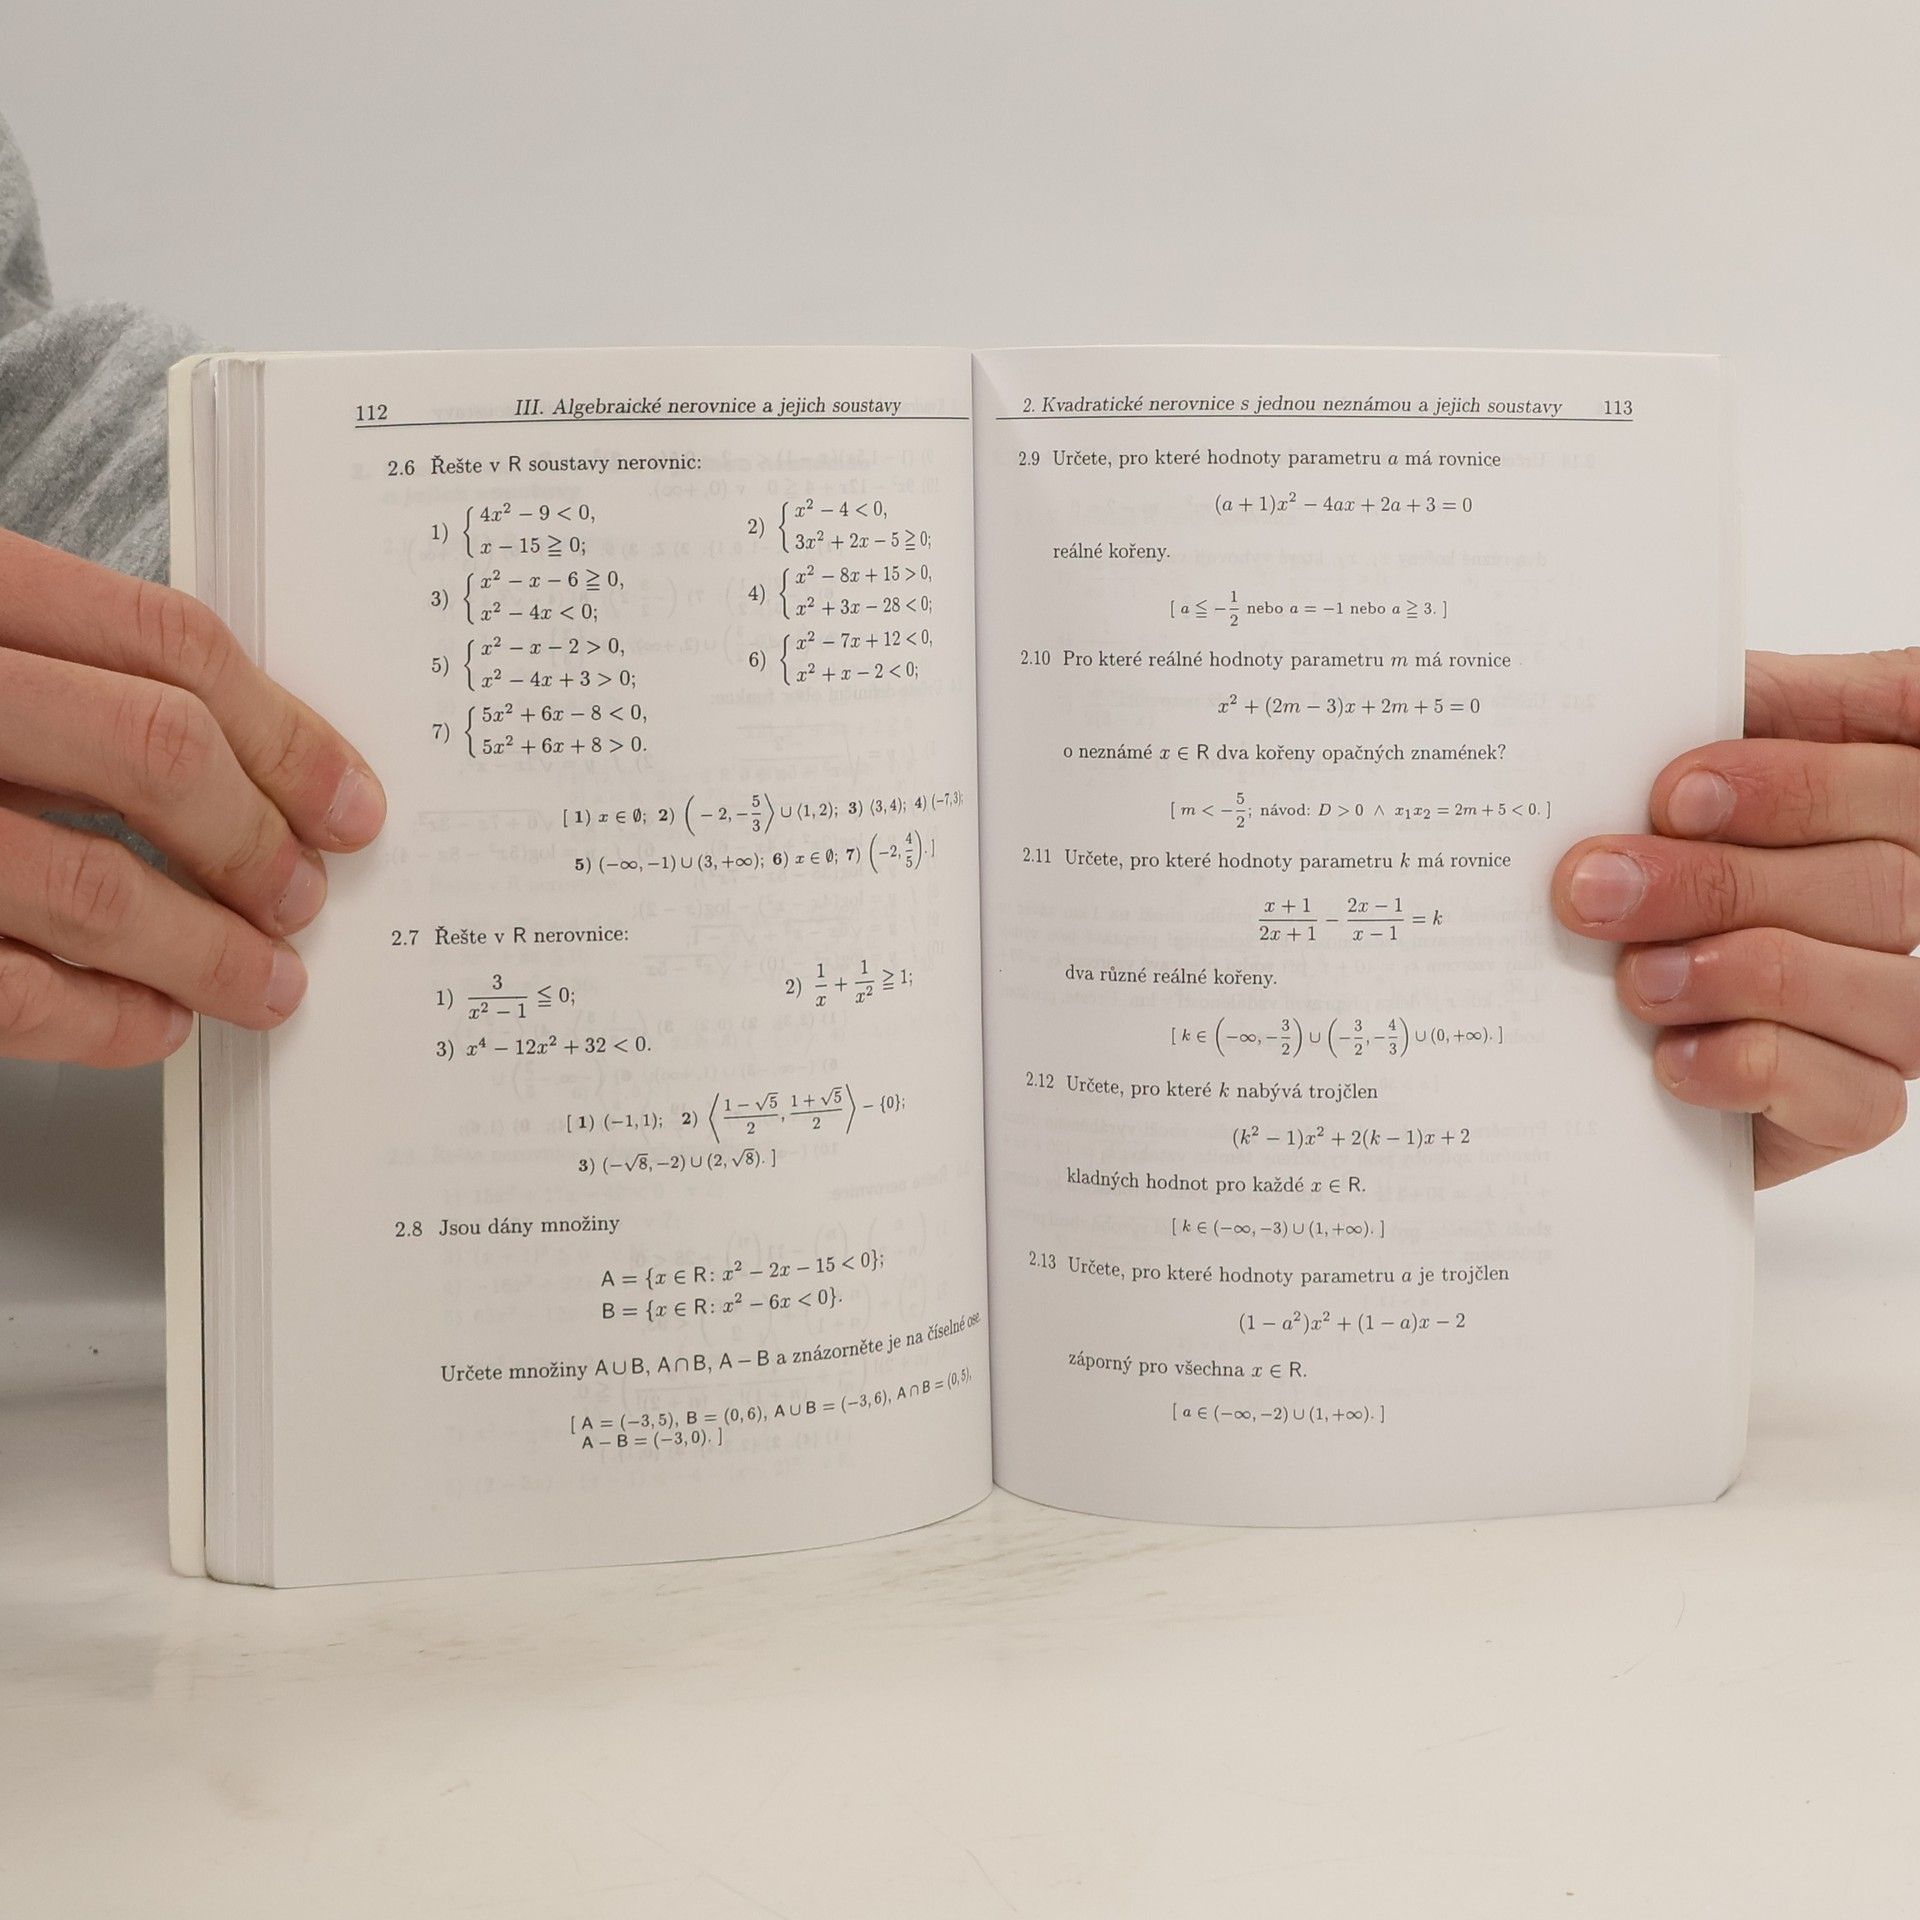 112 III. Algebraické nerovnice a jejich soustavy
2.6 Řešte v R soustavy nerovnic:
1) { 4x² − 9 < 0, x − 15 ≧ 0; 2) { x² − 4 < 0, 3x² + 2x − 5 ≧ 0;
3) { x² − x − 6 ≧ 0, x² − 4x < 0; 4) { x² − 8x + 15 > 0, x² + 3x − 28 < 0;
5) { x² − x − 2 > 0, x² − 4x + 3 > 0; 6) { x² − 7x + 12 < 0, x² + x − 2 < 0;
7) { 5x² + 6x − 8 < 0, 5x² + 6x + 8 > 0.
[ 1) x ∈ ∅; 2) (−2, −5/3⟩ ∪ ⟨1, 2); 3) ⟨3, 4); 4) (−7, 3);
5) (−∞, −1) ∪ (3, +∞); 6) x ∈ ∅; 7) (−2, 4/5). ]
2.7 Řešte v R nerovnice:
1) 3/(x² − 1) ≦ 0; 2) 1/x + 1/x² ≧ 1;
3) x⁴ − 12x² + 32 < 0.
[ 1) (−1, 1); 2) ⟨(1 − √5)/2, (1 + √5)/2⟩ − {0};
3) (−√8, −2) ∪ (2, √8). ]
2.8 Jsou dány množiny
A = {x ∈ R: x² − 2x − 15 < 0};
B = {x ∈ R: x² − 6x < 0}.
Určete množiny A ∪ B, A ∩ B, A − B a znázorněte je na číselné ose.
[ A = (−3, 5), B = (0, 6), A ∪ B = (−3, 6), A ∩ B = (0, 5),
A − B = (−3, 0⟩. ]
2. Kvadratické nerovnice s jednou neznámou a jejich soustavy 113
2.9 Určete, pro které hodnoty parametru a má rovnice
(a + 1)x² − 4ax + 2a + 3 = 0
reálné kořeny.
[ a ≦ −1/2 nebo a = −1 nebo a ≧ 3. ]
2.10 Pro které reálné hodnoty parametru m má rovnice
x² + (2m − 3)x + 2m + 5 = 0
o neznámé x ∈ R dva kořeny opačných znamének?
[ m < −5/2; návod: D > 0 ∧ x₁x₂ = 2m + 5 < 0. ]
2.11 Určete, pro které hodnoty parametru k má rovnice
(x + 1)/(2x + 1) − (2x − 1)/(x − 1) = k
dva různé reálné kořeny.
[ k ∈ (−∞, −3/2) ∪ (−3/2, −4/3) ∪ (0, +∞). ]
2.12 Určete, pro které k nabývá trojčlen
(k² − 1)x² + 2(k − 1)x + 2
kladných hodnot pro každé x ∈ R.
[ k ∈ (−∞, −3) ∪ (1, +∞). ]
2.13 Určete, pro které hodnoty parametru a je trojčlen
(1 − a²)x² + (1 − a)x − 2
záporný pro všechna x ∈ R.
[ a ∈ (−∞, −2) ∪ (1, +∞). ]